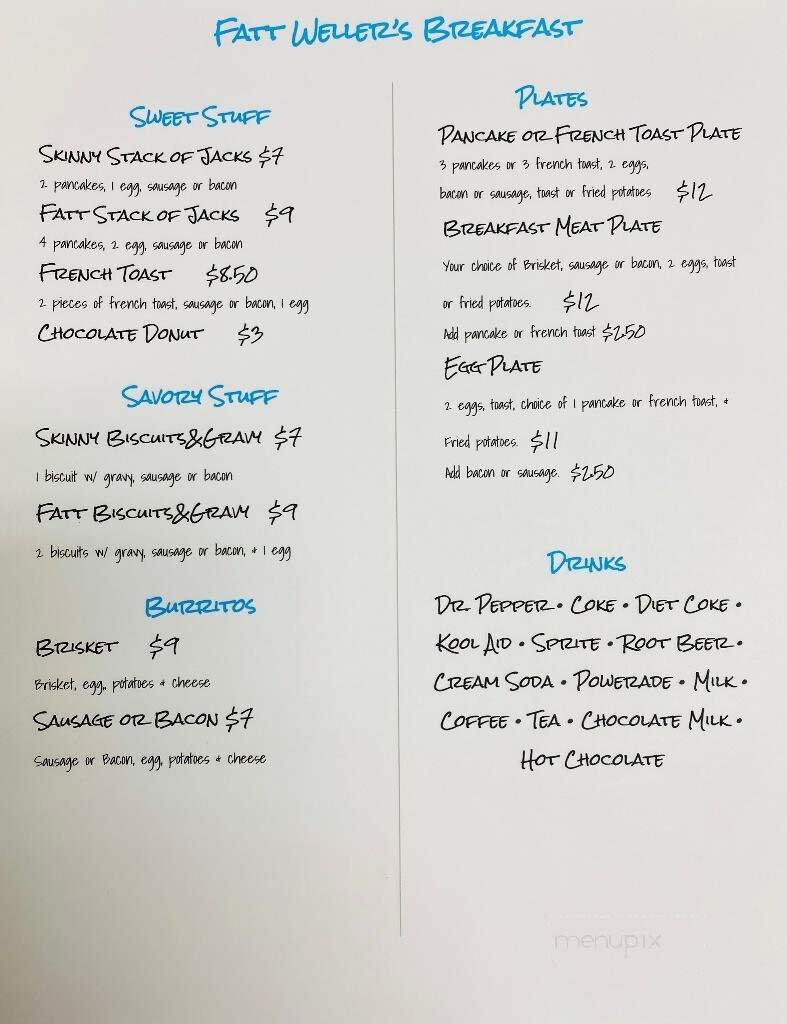 FATT WELLER'S BREAKFAST
SWEET STUFF
SKINNY STACK OF JACKS $7
2 pancakes, 1 egg, sausage or bacon
FATT STACK OF JACKS $9
4 pancakes, 2 egg, sausage or bacon
FRENCH TOAST $8.50
2 pieces of french toast, sausage or bacon, 1 egg
CHOCOLATE DONUT $3
SAVORY STUFF
SKINNY BISCUITS&GRAVY $7
1 biscuit w/ gravy, sausage or bacon
FATT BISCUITS&GRAVY $9
2 biscuits w/ gravy, sausage or bacon, + 1 egg
BURRITOS
BRISKET $9
Brisket, egg,, potatoes + cheese
SAUSAGE OR BACON $7
Sausage or Bacon, egg, potatoes + cheese
PLATES
PANCAKE OR FRENCH TOAST PLATE
3 pancakes or 3 french toast, 2 eggs,
bacon or sausage, toast or fried potatoes $12
BREAKFAST MEAT PLATE
Your choice of Brisket, sausage or bacon, 2 eggs, toast
or fried potatoes. $12
Add pancake or french toast $2.50
EGG PLATE
2 eggs, toast, choice of 1 pancake or french toast, +
Fried potatoes. $11
Add bacon or sausage. $2.50
DRINKS
DR. PEPPER • COKE • DIET COKE •
KOOL AID • SPRITE • ROOT BEER •
CREAM SODA • POWERADE • MILK •
COFFEE • TEA • CHOCOLATE MILK •
HOT CHOCOLATE
menupix